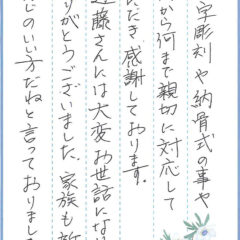 字彫刻や納骨式の事や
から何まで親切に対応して
ただき感謝しております。
近藤さんには大変お世話にな
りがとうございました。家族も
じのいい方だねと言っておりまし